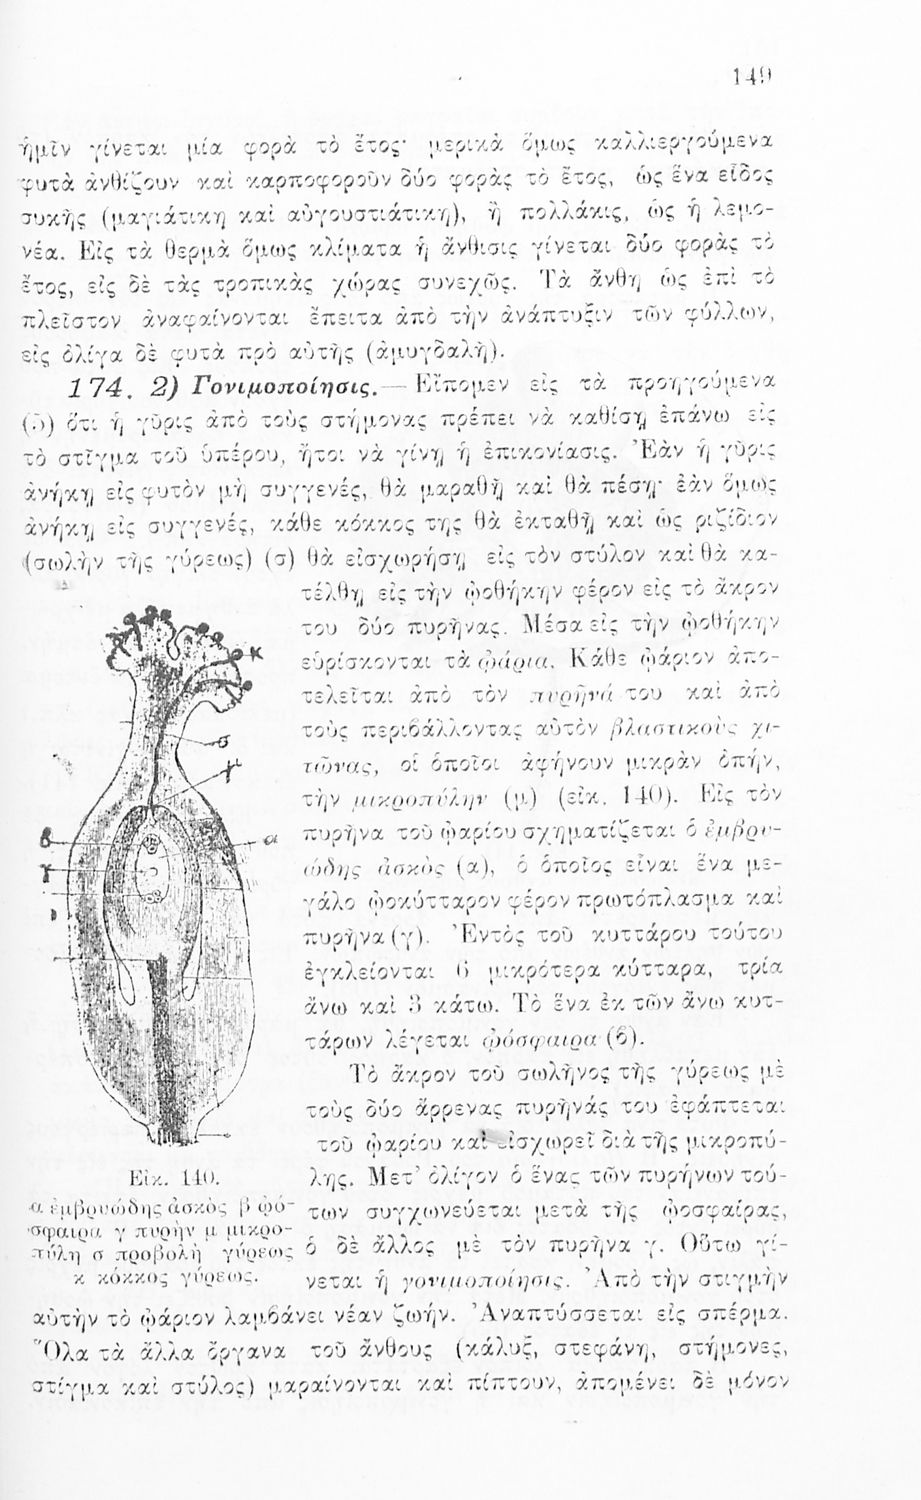 149
ἡμῖν γίνεται μία φορὰ τὸ ἔτος· μερικὰ ὅμως καλλιεργούμενα
φυτὰ ἀνθίζουν καὶ καρποφοροῦν δύο φορὰς τὸ ἔτος, ὡς ἕνα εἶδος
συκῆς (μαγιάτικη καὶ αὐγουστιάτικη), ἢ πολλάκις, ὡς ἡ λεμο-
νέα. Εἰς τὰ θερμὰ ὅμως κλίματα ἡ ἄνθισις γίνεται δύο φορὰς τὸ
ἔτος, εἰς δὲ τὰς τροπικὰς χώρας συνεχῶς. Τὰ ἄνθη ὡς ἐπὶ τὸ
πλεῖστον ἀναφαίνονται ἔπειτα ἀπὸ τὴν ἀνάπτυξιν τῶν φύλλων,
εἰς ὀλίγα δὲ φυτὰ πρὸ αὐτῆς (ἀμυγδαλῆ).
174. 2) Γονιμοποίησις.— Εἴπομεν εἰς τὰ προηγούμενα
ὅτι ἡ γῦρις ἀπὸ τοὺς στήμονας πρέπει νὰ καθίσῃ ἐπάνω εἰς
τὸ στῖγμα τοῦ ὑπέρου, ἤτοι νὰ γίνῃ ἡ ἐπικονίασις. Ἐὰν ἡ γῦρις
ἀνήκῃ εἰς φυτὸν μὴ συγγενές, θὰ μαραθῇ καὶ θὰ πέσῃ· ἐὰν ὅμως
ἀνήκῃ εἰς συγγενές, κάθε κόκκος της θὰ ἐκταθῇ καὶ ὡς ριζίδιον
(σωλὴν τῆς γύρεως) (σ) θὰ εἰσχωρήσῃ εἰς τὸν στύλον καὶ θὰ κα-
τέλθῃ εἰς τὴν ᾠοθήκην φέρον εἰς τὸ ἄκρον
του δύο πυρῆνας. Μέσα εἰς τὴν ᾠοθήκην
εὑρίσκονται τὰ ᾠάρια. Κάθε ᾠάριον ἀπο-
τελεῖται ἀπὸ τὸν πυρῆνά του καὶ ἀπὸ
τοὺς περιβάλλοντας αὐτὸν βλαστικοὺς χι-
τῶνας, οἱ ὁποῖοι ἀφήνουν μικρὰν ὀπήν,
τὴν μικροπύλην (μ) (εἰκ. 140). Εἰς τὸν
πυρῆνα τοῦ ᾠαρίου σχηματίζεται ὁ ἐμβρυ-
ώδης ἀσκὸς (α), ὁ ὁποῖος εἶναι ἕνα με-
γάλο ᾠοκύτταρον φέρον πρωτόπλασμα καὶ
πυρῆνα (γ). Ἐντὸς τοῦ κυττάρου τούτου
ἐγκλείονται 6 μικρότερα κύτταρα, τρία
ἄνω καὶ 3 κάτω. Τὸ ἕνα ἐκ τῶν ἄνω κυτ-
τάρων λέγεται ᾠόσφαιρα (β).
Τὸ ἄκρον τοῦ σωλῆνος τῆς γύρεως μὲ
τοὺς δύο ἄρρενας πυρῆνάς του ἐφάπτεται
τοῦ ᾠαρίου καὶ εἰσχωρεῖ διὰ τῆς μικροπύ-
λης. Μετ' ὀλίγον ὁ ἕνας τῶν πυρήνων τού-
των συγχωνεύεται μετὰ τῆς ᾠοσφαίρας,
ὁ δὲ ἄλλος μὲ τὸν πυρῆνα γ. Οὕτω γί-
νεται ἡ γονιμοποίησις. Ἀπὸ τὴν στιγμὴν
αὐτὴν τὸ ᾠάριον λαμβάνει νέαν ζωήν. Ἀναπτύσσεται εἰς σπέρμα.
Ὅλα τὰ ἄλλα ὄργανα τοῦ ἄνθους (κάλυξ, στεφάνη, στήμονες,
στίγμα καὶ στύλος) μαραίνονται καὶ πίπτουν, ἀπομένει δὲ μόνον
κ
σ
μ
β
α
γ
Εἰκ. 140.
α ἐμβρυώδης ἀσκὸς β ᾠό-
σφαιρα γ πυρὴν μ μικρο-
πύλη σ προβολὴ γύρεως
κ κόκκος γύρεως.